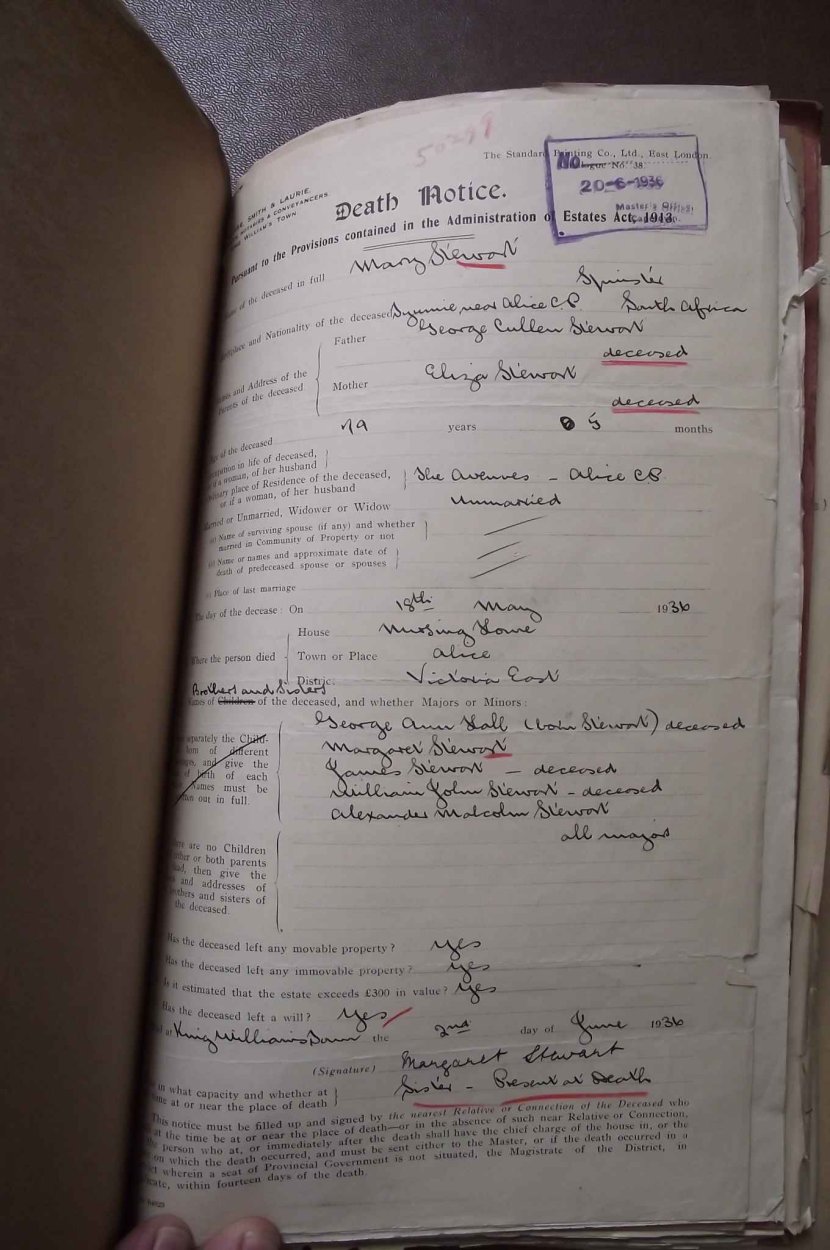 50299
The Standard Printing Co., Ltd., East London.
No.
logue No. 38
20-6-1936
Master's Office,
SMITH & LAURIE,
NOTARIES & CONVEYANCERS,
WILLIAM'S TOWN.
Death Notice.
Pursuant to the Provisions contained in the Administration of Estates Act, 1913.
Name of the deceased in full Mary Stewart
Spinster
Birthplace and Nationality of the deceased near Alice C.P. South Africa
Father George Cullen Stewart
deceased
Names and Address of the
Parents of the deceased.
Mother Eliza Stewart
deceased
Age of the deceased 79 years 5 months
Occupation in life of deceased,
if a woman, of her husband
Ordinary place of Residence of the deceased,
or if a woman, of her husband
The Avenues - Alice C.P.
Married or Unmarried, Widower or Widow Unmarried
(a) Name of surviving spouse (if any) and whether
married in Community of Property or not
(b) Name or names and approximate date of
death of predeceased spouse or spouses
(c) Place of last marriage
The day of the decease: On 18th May 1936
House Nursing Home
Where the person died
Town or Place Alice
District Victoria East
Brothers and Sisters
Names of Children of the deceased, and whether Majors or Minors:
George Ann Hall (born Stewart) deceased
Margaret Stewart
James Stewart - deceased
William John Stewart - deceased
Alexander Malcolm Stewart
all major
separately the Child-
born of different
marriages, and give the
of birth of each
Names must be
out in full.
there are no Children
either or both parents
dead, then give the
and addresses of
brothers and sisters of
the deceased.
Has the deceased left any movable property? Yes
Has the deceased left any immovable property? Yes
Is it estimated that the estate exceeds £300 in value? Yes
Has the deceased left a will? Yes
at King Williams Town the 2nd day of June 1936
(Signature) Margaret Stewart
in what capacity and whether at
time at or near the place of death
Sister - Present at Death
This notice must be filled up and signed by the nearest Relative or Connection of the Deceased who
at the time be at or near the place of death—or in the absence of such near Relative or Connection,
the person who at, or immediately after the death shall have the chief charge of the house in, or the
on which the death occurred, and must be sent either to the Master, or if the death occurred in a
wherein a seat of Provincial Government is not situated, the Magistrate of the District, in
within fourteen days of the death.